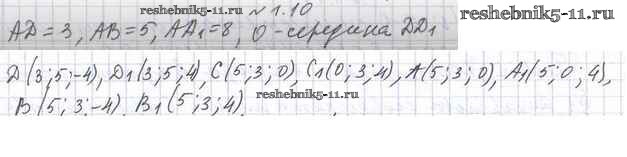 reshebnik5-11.ru
№1.10
AD=3, AB=5, AA₁=8, O-середина DD₁
reshebnik5-11.ru
D(3;5;-4), D₁(3;5;4), C(5;3;0), C₁(0;3;4), A(5;3;0), A₁(5;0;4),
B(5;3;-4), B₁(5;3;4).
reshebnik5-11.ru